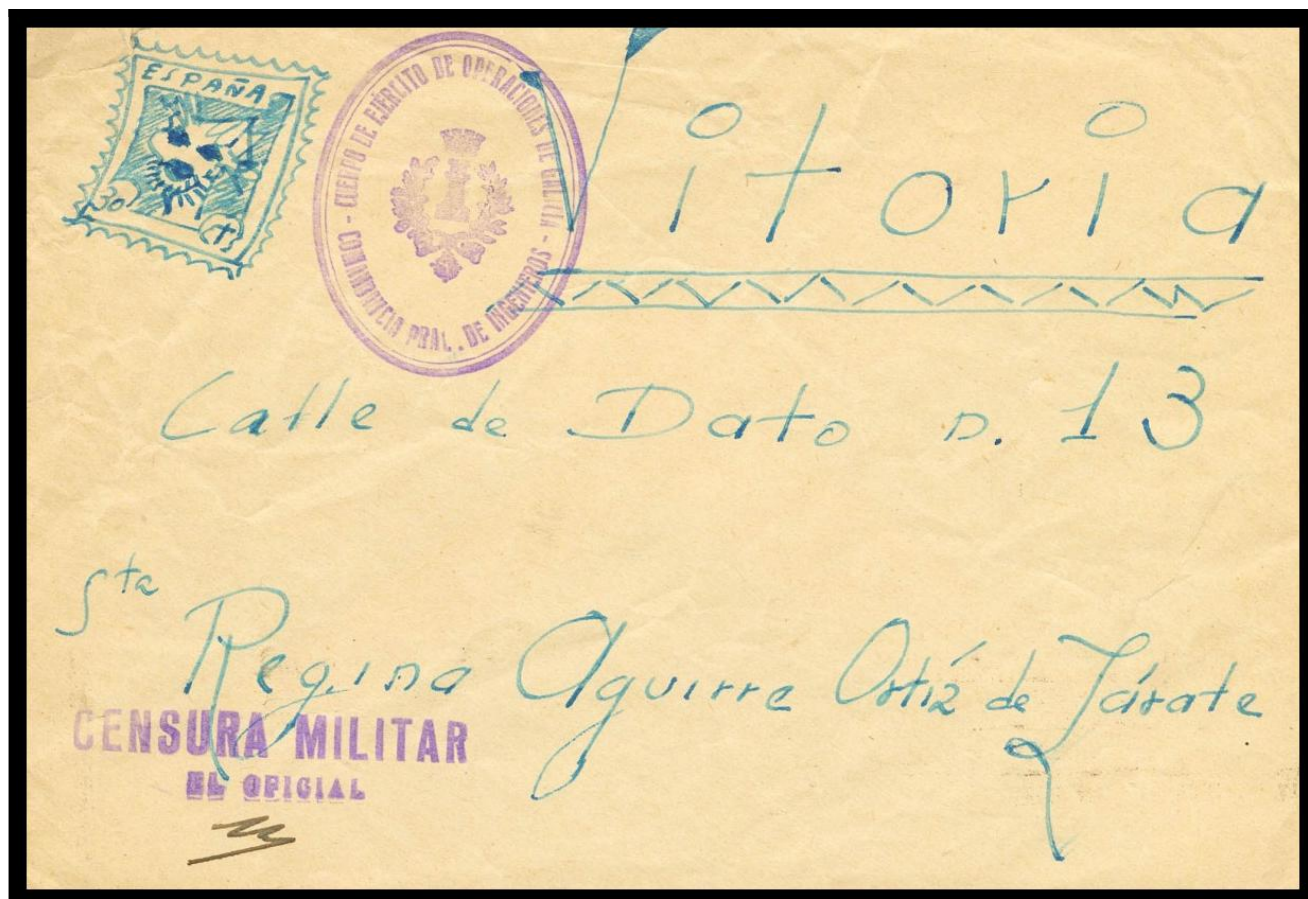 ESPAÑA
30 cts
CUERPO DE EJÉRCITO DE OPERACIONES DE GALICIA - COMANDANCIA PRAL. DE INGENIEROS -
Vitoria
Calle de Dato n. 13
Sta Regina Aguirre Ortíz de Zárate
CENSURA MILITAR
EL OFICIAL